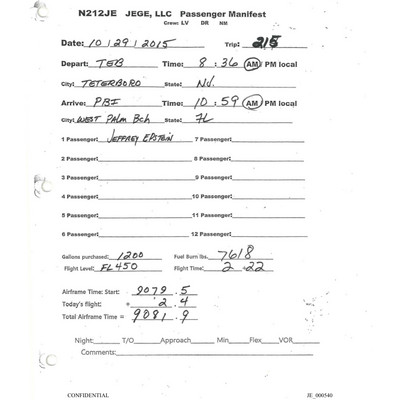 N212JE JEGE, LLC Passenger Manifest
Crew: LV DR NM
Date: 10 / 29 / 2015 Trip: 215
Depart: TEB Time: 8 : 36 AM / PM local
City: TETERBORO State: NJ.
Arrive: PBI Time: 10 : 59 AM / PM local
City: WEST PALM Bch State: FL
1 Passenger: JEFFREY EPSTEIN 7 Passenger:
2 Passenger: 8 Passenger:
3 Passenger: 9 Passenger:
4 Passenger: 10 Passenger:
5 Passenger: 11 Passenger:
6 Passenger: 12 Passenger:
Gallons purchased: 1200 Fuel Burn lbs. 7618
Flight Level: FL450 Flight Time: 2 : 22
Airframe Time: Start: 9079 . 5
Today's flight: + 2 . 4
Total Airframe Time = 9081 . 9
Night: T/O Approach Min Flex VOR
Comments:
CONFIDENTIAL JE_000540